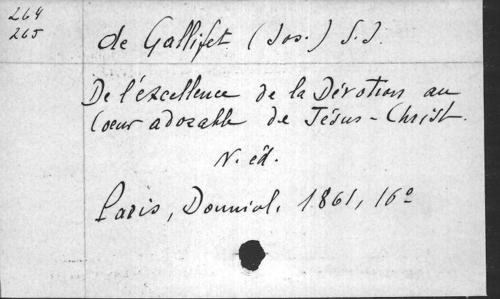 264
265
de Gallifet (Jos.) S.J.
De l'éxcellence de la Dévotion au
Coeur adorable de Jésus-Christ.
N. éd.
Paris, Douniol. 1861, 16°